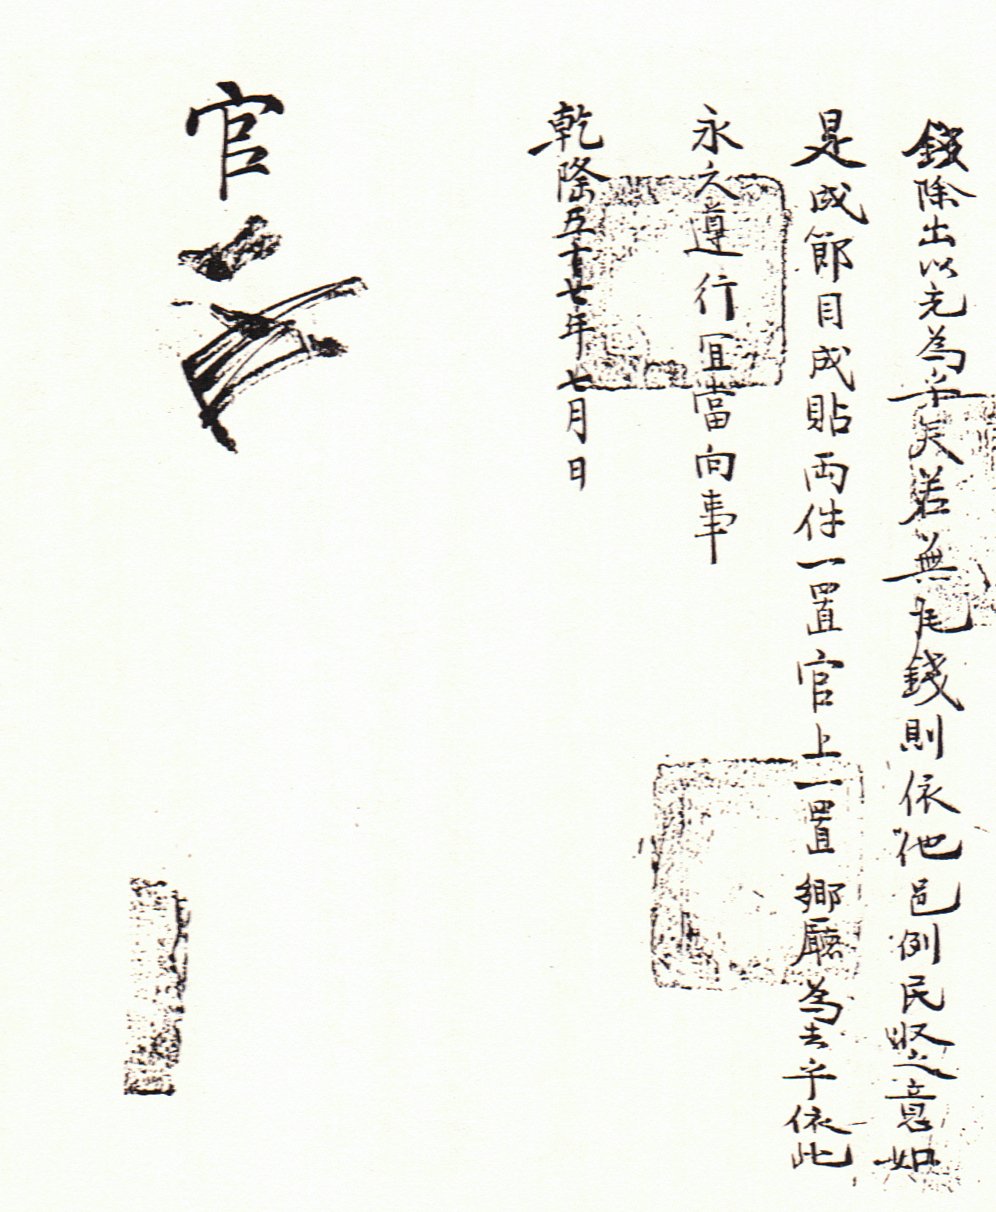 錢除出以充爲乎矣若無尾錢則依他邑例民収之意如
是成節目成貼両件一置官上一置鄉廳爲去乎依此
永久遵行冝當向事
乾隆五十七年七月日
官